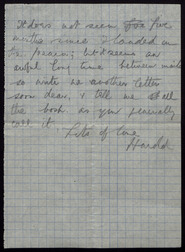 It does not seem five
months since I landed in
but it seems an
awful long time between mails
so write me another letter
soon dear, & tell me all
the book as you generally
call it.
Lots of love
Harold